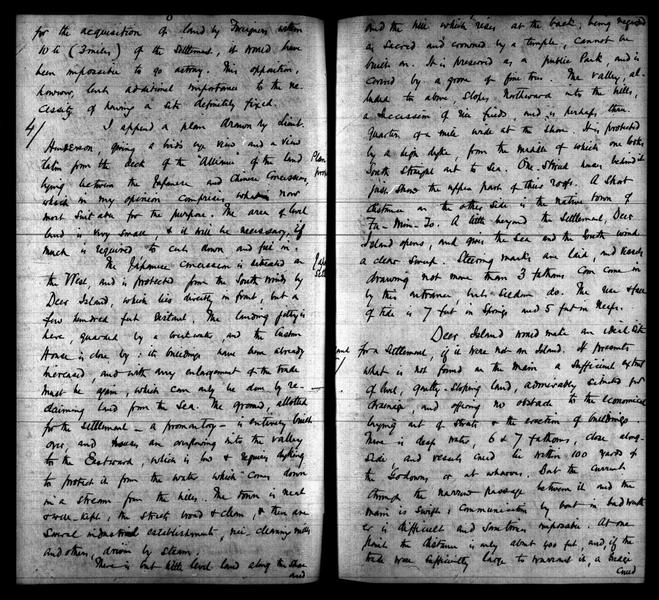 for the acquisition of land by Foreigners within
10 li (3 miles) of the Settlement, it would have
been impossible to go astray. This opposition,
however, lends additional importance to the ne-
cessity of having a site definitely fixed.
4/ I append a plan drawn by Lieut.
Henderson giving a birds eye view and a view
taken from the deck of the "Alliance" of the land
lying between the Japanese and Chinese Concessions,
which in my opinion comprises what is now
most suitable for the purpose. The area of level
land is very small & it will be necessary, if
much is required to cut down and fill in.
The Japanese concession is situated on
the West, and is protected from the South winds by
Deer Island, which lies directly in front, but a
few hundred feet distant. The landing jetty is
here, guarded by a breakwater, and the Custom
House is close by: its buildings have been already
increased, and with any enlargement of the trade
must be again, which can only be done by re-
claiming land from the Sea. The ground, allotted
for the settlement – a promontory – is entirely built
over, and houses are overflowing into the valley
to the Eastward, which is low & requires dyking
to protect it from the water which comes down
in a stream from the hills. The town is neat
& well-kept; the streets broad & clean, & there are
several industrial establishments, rice-cleaning mills
and others, driven by steam.
There is but little level land along the shore
and
and the hill which rises at the back, being regarded
as sacred and crowned by a temple, cannot be
built on. It is preserved as a public Park, and is
covered by a grove of fine trees. The valley, al-
luded to above, slopes Northward into the hills,
a succession of rice fields, and is perhaps three
quarters of a mile wide at the shore. It is protected
by a high dyke, from the middle of which one looks
South straight out to Sea. One Stood near behind it
just show the upper part of their roofs. A short
distance on the other side is the native town of
Fu-Min-To. A little beyond the Settlement, Deer
Island opens, and gives the Sea and the South winds
a clear sweep. Steering marks are laid, and vessels
drawing not more than 3 fathoms can come in
by this entrance, but seldom do. The rise & fall
of tide is 7 feet in Springs and 5 feet in Neaps.
Deer Island would make an ideal site
for a Settlement, if it were not an Island. It presents
what is not found on the main a sufficient extent
of level, gently-sloping land, admirably suited for
drainage, and offering no obstacle to the economical
laying out of Streets & the erection of buildings.
There is deep water, 6 & 7 fathoms, close along-
side, and vessels could lie within 100 yards of
the Godowns, or at wharves. But the current
through the narrow passage between it and the
main is swift; communication by boat in bad weath-
er is difficult and sometimes impossible. At one
point the distance is only about 900 feet, and, if the
trade were sufficiently large to warrant it, a bridge
could